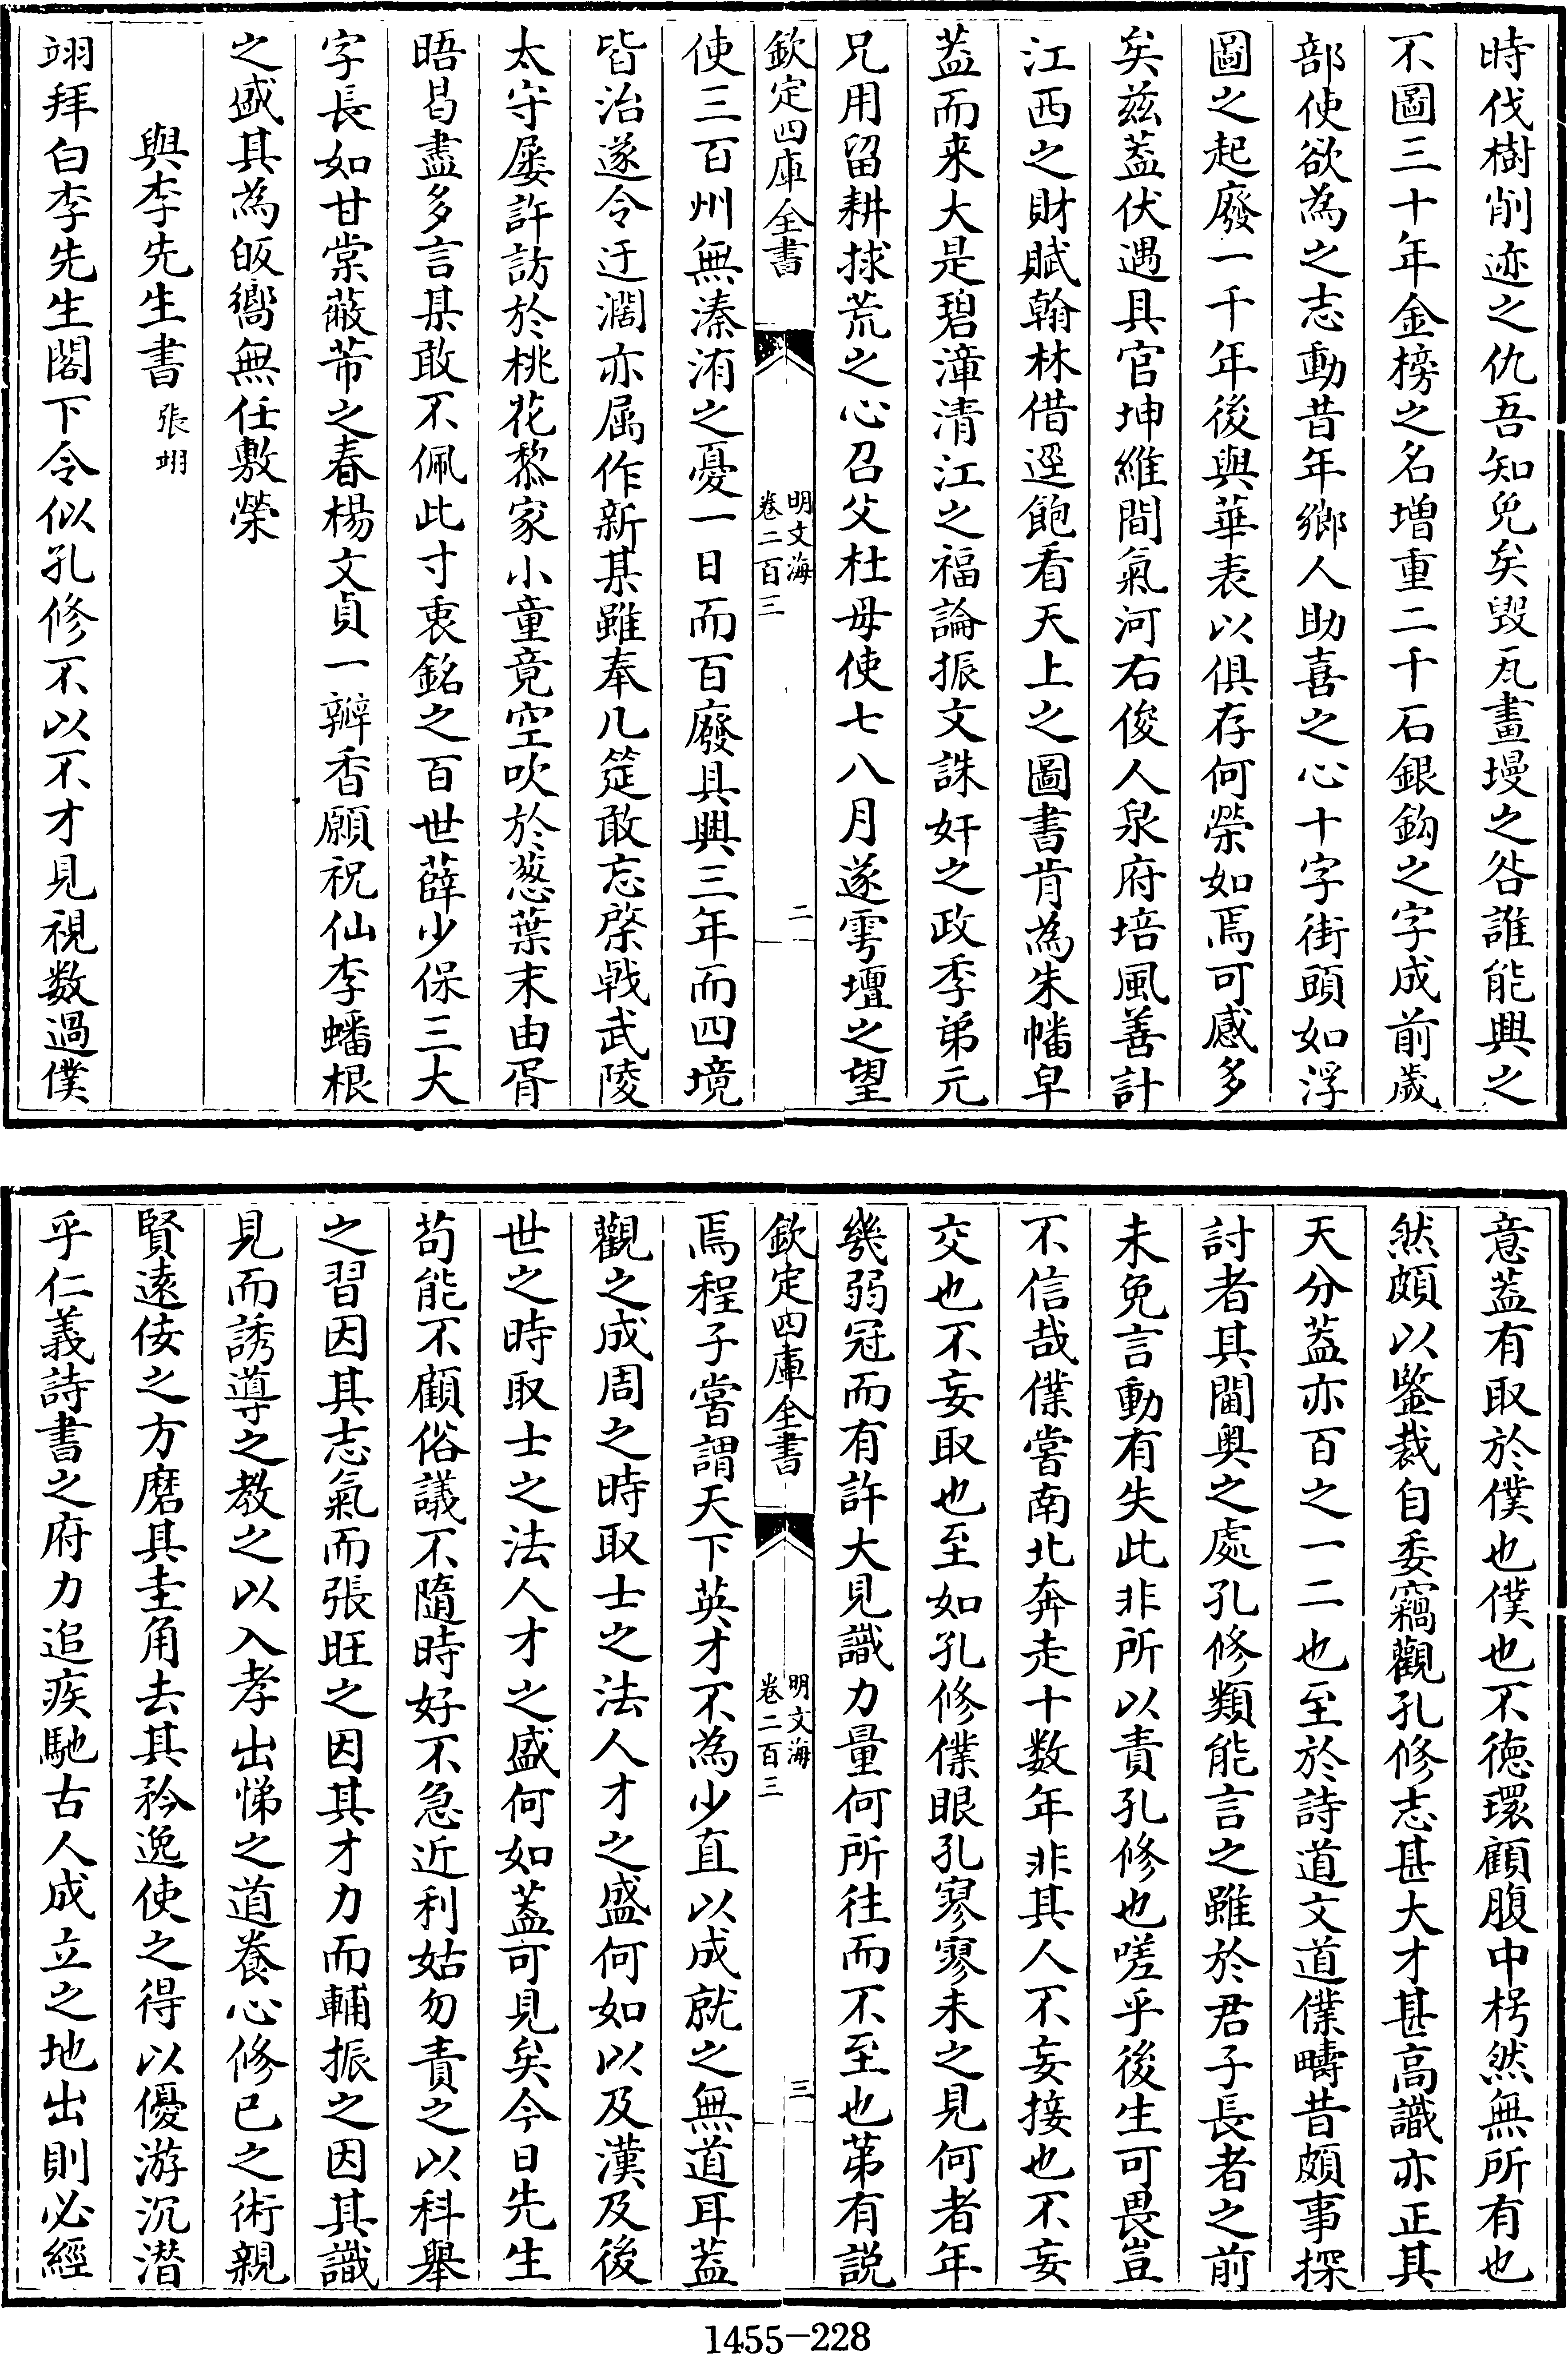 時伐樹削迹之仇吾知免矣毁瓦畫墁之咎誰能興之
不圖三十年金榜之名增重二千石銀鈎之字成前嵗
部使欲為之志動昔年鄉人助喜之心十字街頭如浮
圖之起廢一千年後與華表以俱存何榮如焉可感多
矣兹葢伏遇具官坤維間氣河右俊人泉府培風善計
江西之財賦翰林借逕飽看天上之圖書肯為朱幡皁
葢而来大是碧漳清江之福論振文誅奸之政季弟元
兄用留耕捄荒之心召父杜母使七八月遂雩壇之望
欽定四庫全書
明文海
卷二百三
二
使三百州無溱洧之憂一日而百廢具興三年而四境
皆治遂令迂濶亦屈作新某雖奉几筵敢忘棨㦸武陵
太守屡許訪於桃花黎家小童竟空吹於葱葉末由胥
晤曷盡多言某敢不佩此寸衷銘之百世薛少保三大
字長如甘棠蔽芾之春楊文貞一瓣香願祝仙李蟠根
之盛其為皈嚮無任敷榮
與李先生書 張翊
翊拜白李先生閣下令似孔修不以不才見視数過僕
意葢有取於僕也僕也不徳環顧腹中枵然無所有也
然頗以鑒裁自委竊觀孔修志甚大才甚高識亦正其
天分葢亦百之一二也至於詩道文道僕疇昔頗事探
討者其閫奥之處孔修類能言之雖於君子長者之前
未免言動有失此非所以責孔修也嗟乎後生可畏豈
不信哉僕嘗南北奔走十数年非其人不妄接也不妄
交也不妄取也至如孔修僕眼孔寥寥未之見何者年
幾弱冠而有許大見識力量何所往而不至也苐有説
欽定四庫全書
明文海
卷二百三
三
焉程子嘗謂天下英才不為少直以成就之無道耳葢
觀之成周之時取士之法人才之盛何如以及漢及後
世之時取士之法人才之盛何如葢可見矣今日先生
苟能不顧俗議不隨時好不急近利姑勿責之以科舉
之習因其志氣而張旺之因其才力而輔振之因其識
見而誘導之教之以入孝出悌之道養心修已之術親
賢逺佞之方磨其圭角去其矜逸使之得以優游沉潛
乎仁義詩書之府力追疾馳古人成立之地出則必經
1455-228